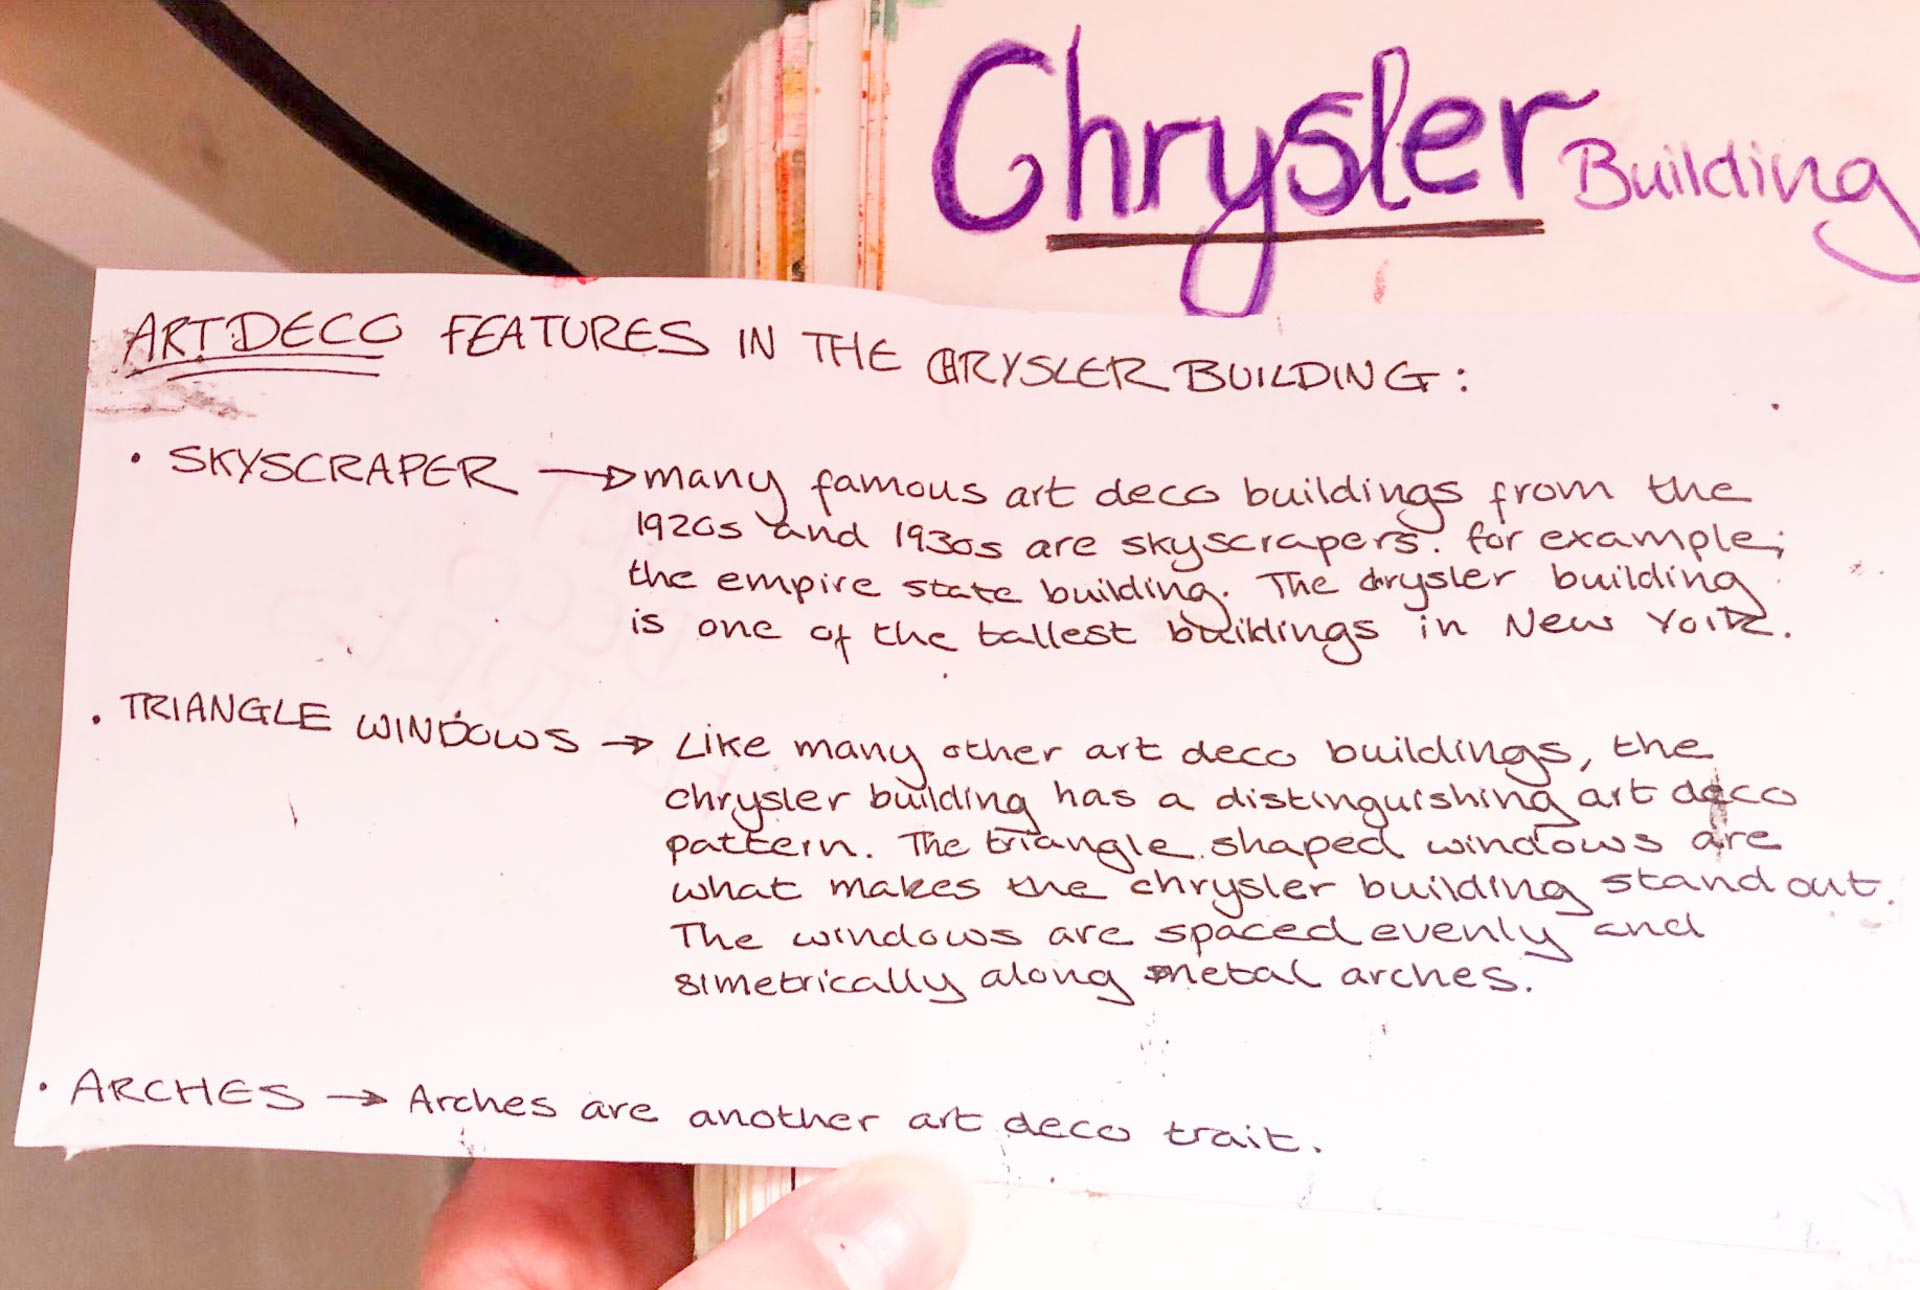 Chrysler Building
ARTDECO FEATURES IN THE CHRYSLER BUILDING:
• SKYSCRAPER → many famous art deco buildings from the
1920s and 1930s are skyscrapers. for example;
the empire state building. The chrysler building
is one of the tallest buildings in New York.
• TRIANGLE WINDOWS → Like many other art deco buildings, the
chrysler building has a distinguishing art deco
pattern. The triangle shaped windows are
what makes the chrysler building stand out.
The windows are spaced evenly and
simetrically along metal arches.
• ARCHES → Arches are another art deco trait.